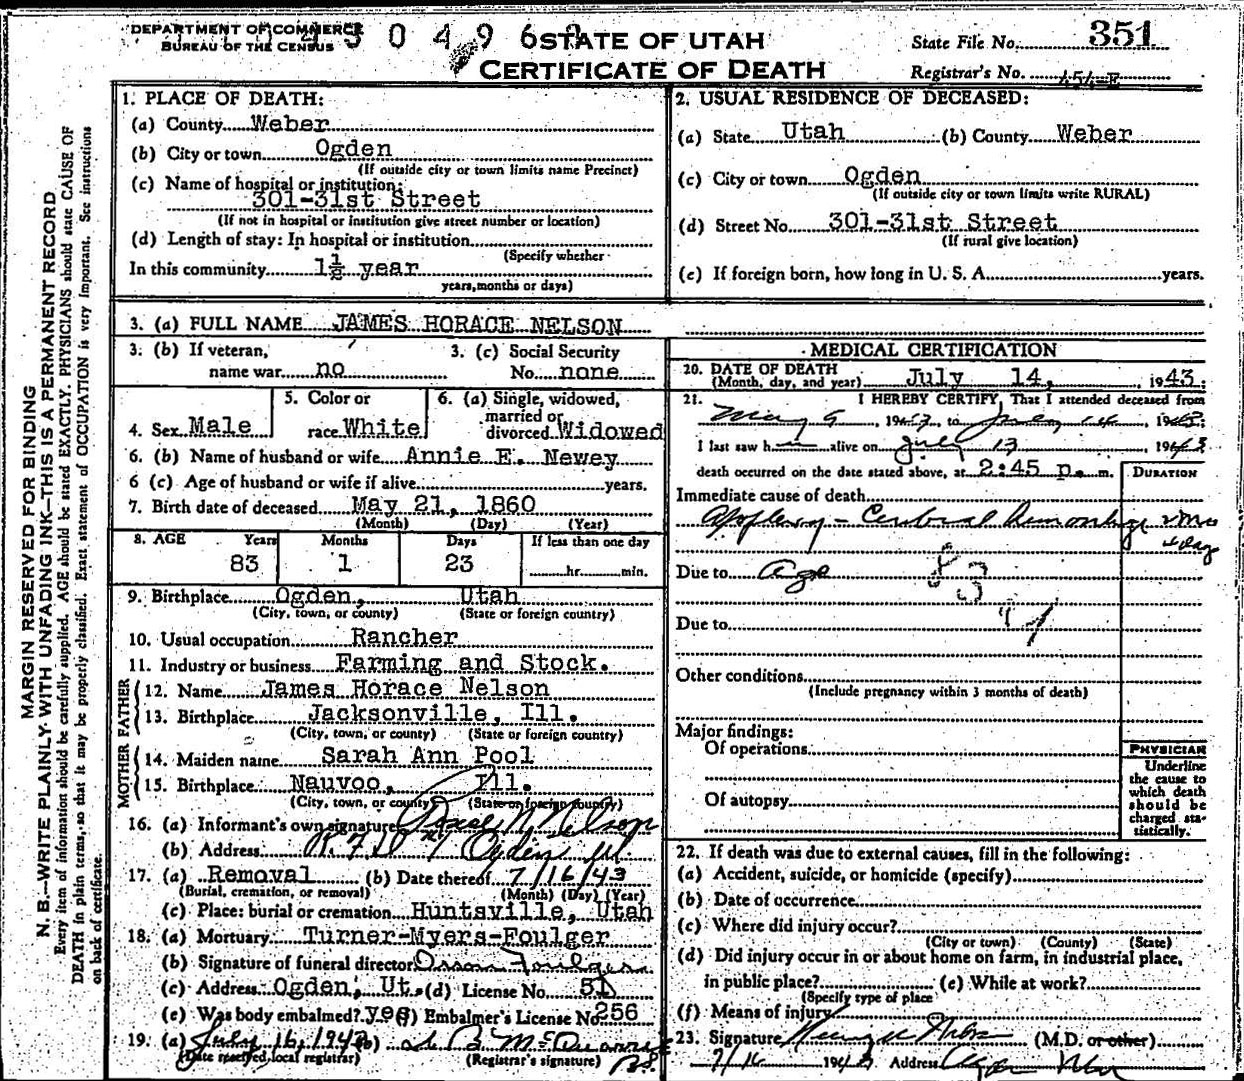 DEPARTMENT OF COMMERCE
BUREAU OF THE CENSUS
STATE OF UTAH
CERTIFICATE OF DEATH
State File No. 351
Registrar's No. 454-E
MARGIN RESERVED FOR BINDING
N. B.—WRITE PLAINLY WITH UNFADING INK—THIS IS A PERMANENT RECORD
Every item of information should be carefully supplied. AGE should be stated EXACTLY. PHYSICIANS should state CAUSE OF
DEATH in plain terms, so that it may be properly classified. Exact statement of OCCUPATION is very important. See instructions
on back of certificate.
1. PLACE OF DEATH:
(a) County Weber
(b) City or town Ogden
(If outside city or town limits name Precinct)
(c) Name of hospital or institution:
301-31st Street
(If not in hospital or institution give street number or location)
(d) Length of stay: In hospital or institution
(Specify whether
In this community 1½ year
years, months or days)
2. USUAL RESIDENCE OF DECEASED:
(a) State Utah (b) County Weber
(c) City or town Ogden
(If outside city or town limits write RURAL)
(d) Street No. 301-31st Street
(If rural give location)
(e) If foreign born, how long in U. S. A. years.
3. (a) FULL NAME JAMES HORACE NELSON
3. (b) If veteran, name war no
3. (c) Social Security No. none
4. Sex Male
5. Color or race White
6. (a) Single, widowed, married or divorced Widowed
6. (b) Name of husband or wife Annie E. Newey
6 (c) Age of husband or wife if alive years.
7. Birth date of deceased May 21, 1860
(Month) (Day) (Year)
8. AGE Years Months Days If less than one day
83 1 23 hr. min.
9. Birthplace Ogden, Utah
(City, town, or county) (State or foreign country)
10. Usual occupation Rancher
11. Industry or business Farming and Stock.
FATHER
12. Name James Horace Nelson
13. Birthplace Jacksonville, Ill.
(City, town, or county) (State or foreign country)
MOTHER
14. Maiden name Sarah Ann Pool
15. Birthplace Nauvoo, Ill.
(City, town, or county) (State or foreign country)
16. (a) Informant's own signature Nelson
(b) Address R.F.D. Ogden Ut.
17. (a) Removal (b) Date thereof 7/16/43
(Burial, cremation, or removal) (Month) (Day) (Year)
(c) Place: burial or cremation Huntsville, Utah
18. (a) Mortuary Turner-Myers-Foulger
(b) Signature of funeral director Orson Foulger
(c) Address Ogden, Ut. (d) License No. 51
(e) Was body embalmed? yes (f) Embalmer's License No. 256
19. (a) July 16, 1943 (b)
(Date received local registrar) (Registrar's signature)
MEDICAL CERTIFICATION
20. DATE OF DEATH
(Month, day, and year) July 14, 1943
21. I HEREBY CERTIFY, That I attended deceased from
May 9, 19 to July 14 1943
I last saw h alive on July 13 1943
death occurred on the date stated above, at 2:45 p. m.
DURATION
Immediate cause of death
Apoplexy - Cerebral hemorrhage
Due to Age 83
Due to
Other conditions
(Include pregnancy within 3 months of death)
Major findings:
Of operations
Of autopsy
PHYSICIAN
Underline
the cause to
which death
should be
charged sta-
tistically.
22. If death was due to external causes, fill in the following:
(a) Accident, suicide, or homicide (specify)
(b) Date of occurrence
(c) Where did injury occur?
(City or town) (County) (State)
(d) Did injury occur in or about home on farm, in industrial place,
in public place? (e) While at work?
(Specify type of place
(f) Means of injury
23. Signature (M.D. or other)
7/16 1943 Address Ogden